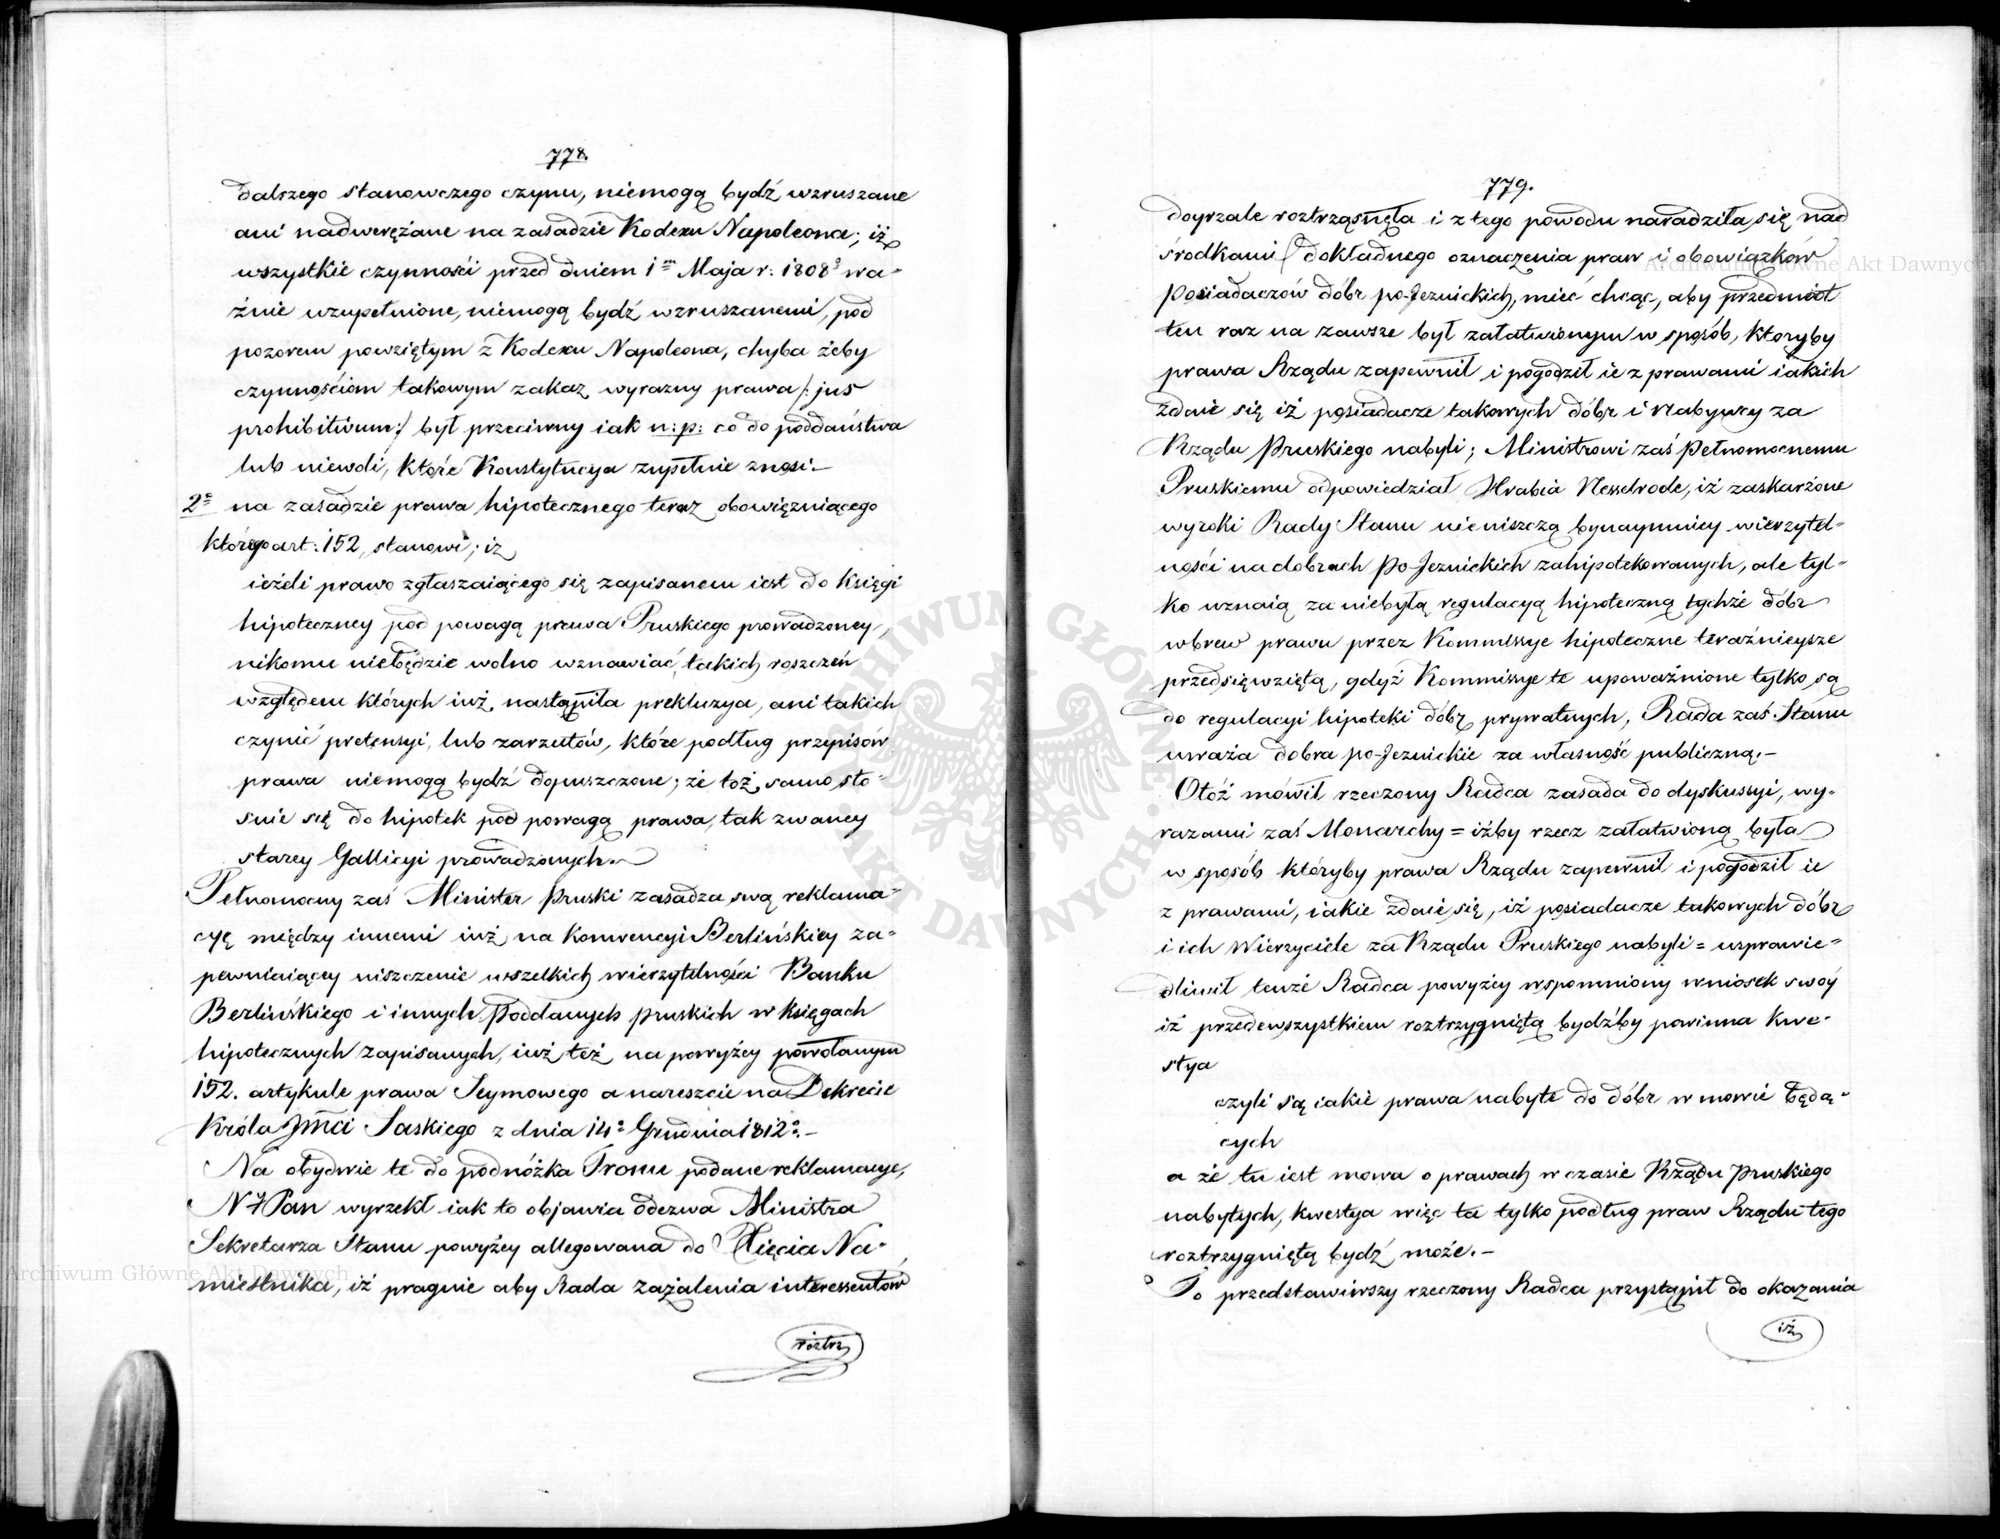 778.
dalszego stanowczego czynu, niemogą bydź wzruszane
ani nadwerężane na zasadzie Kodexu Napoleona; iż
wszystkie czynności przed dniem 1m Maja r: 1808o wa-
żnie uzupełnione, niemogą bydź wzruszanemi, pod
pozorem powziętym z Kodexu Napoleona, chyba żeby
czynnościom takowym zakaz wyrazny prawa /: jus
prohibitivum :/ był przeciwny iak n: p: co do poddaństwa
lub niewoli, które Konstytucya zupełnie znosi.-
2e na zasadzie prawa hipotecznego teraz obowięzuiącego
którego art: 152, stanowi; iż
ieżeli prawo zgłaszaiącego się zapisanem iest do Księgi
hipoteczney pod powagą prawa Pruskiego prowadzoney,
nikomu niebędzie wolno wznawiać takich roszczeń
względem których iuż nastąpiła prekluzya, ani takich
czynić pretensyi, lub zarzutów, które podług przepisów
prawa niemogą bydź dopuszczone; że toż samo sto-
suie się do hipotek pod powagą prawa, tak zwaney
starey Gallicyi prowadzonych.-
Pełnomocny zaś Minister Pruski zasadza swą reklama-
cyę między innemi iuż na Konwencyi Berlińskiey za-
pewniaiącey uiszczenie wszelkich wierzytelności Banku
Berlińskiego i innych Poddanych pruskich w Księgach
hipotecznych zapisanych, iuż też na powyżey powołanym
152. artykule prawa Seymowego a nareszcie na Dekrecie
Króla Jmci Saskiego z dnia 14o Grudnia 1812o.-
Na obydwie te do podnóżka Tronu podane reklamacye,
N. Pan wyrzekł iak to objawia odezwa Ministra
Sekretarza Stanu powyżey allegowana do Xięcia Na-
miestnika, iż pragnie aby Rada zażalenia interessentów
roztrz
779.
doyrzale roztrząsnęła i z tego powodu naradziła się nad
środkami dokładnego oznaczenia praw i obowiązków
Posiadaczów dóbr po-Jezuickich, mieć chcąc, aby przedmiot
ten raz na zawsze był załatwionym w sposób, któryby
prawa Rządu zapewnił i pogodził ie z prawami iakich
zdaie się iż posiadacze takowych dóbr i Nabywcy za
Rządu Pruskiego nabyli; Ministrowi zaś Pełnomocnemu
Pruskiemu odpowiedział Hrabia Nesselrode, iż zaskarżone
wyroki Rady Stanu nieniszczą bynaymniey wierzytel-
ności na dobrach Po-Jezuickich zahipotekowanych, ale tyl-
ko uznaią za niebyłą regulacyą hipoteczną tychże dóbr
wbrew prawu przez Kommissye hipoteczne teraźnieysze
przedsięwziętą, gdyż Kommissye te upoważnione tylko są
do regulacyi hipoteki dóbr prywatnych, Rada zaś Stanu
uważa dobra po-Jezuickie za własność publiczną.-
Otóż mówił rzeczony Radca zasada do dyskussyi, wy-
razami zaś Monarchy = iżby rzecz załatwioną była
w sposób któryby prawa Rządu zapewnił i pogodził ie
z prawami, iakie zdaie się, iż posiadacze takowych dóbr
i ich Wierzyciele za Rządu Pruskiego nabyli = usprawie-
dliwił tenże Radca powyżey wspomniony wniosek swóy
iż przedewszystkiem roztrzygniętą bydźby powinna kwe-
stya
czyli są iakie prawa nabyte do dóbr w mowie będą-
cych
a że tu iest mowa o prawach w czasie Rządu Pruskiego
nabytych, kwestya więc ta tylko podług praw Rządu tego
roztrzygniętą bydź może.-
To przedstawiwszy rzeczony Radca przystąpił do okazania
iż
Archiwum Główne Akt Dawnych
Archiwum Główne Akt Dawnych
ARCHIWUM GŁÓWNE AKT DAWNYCH